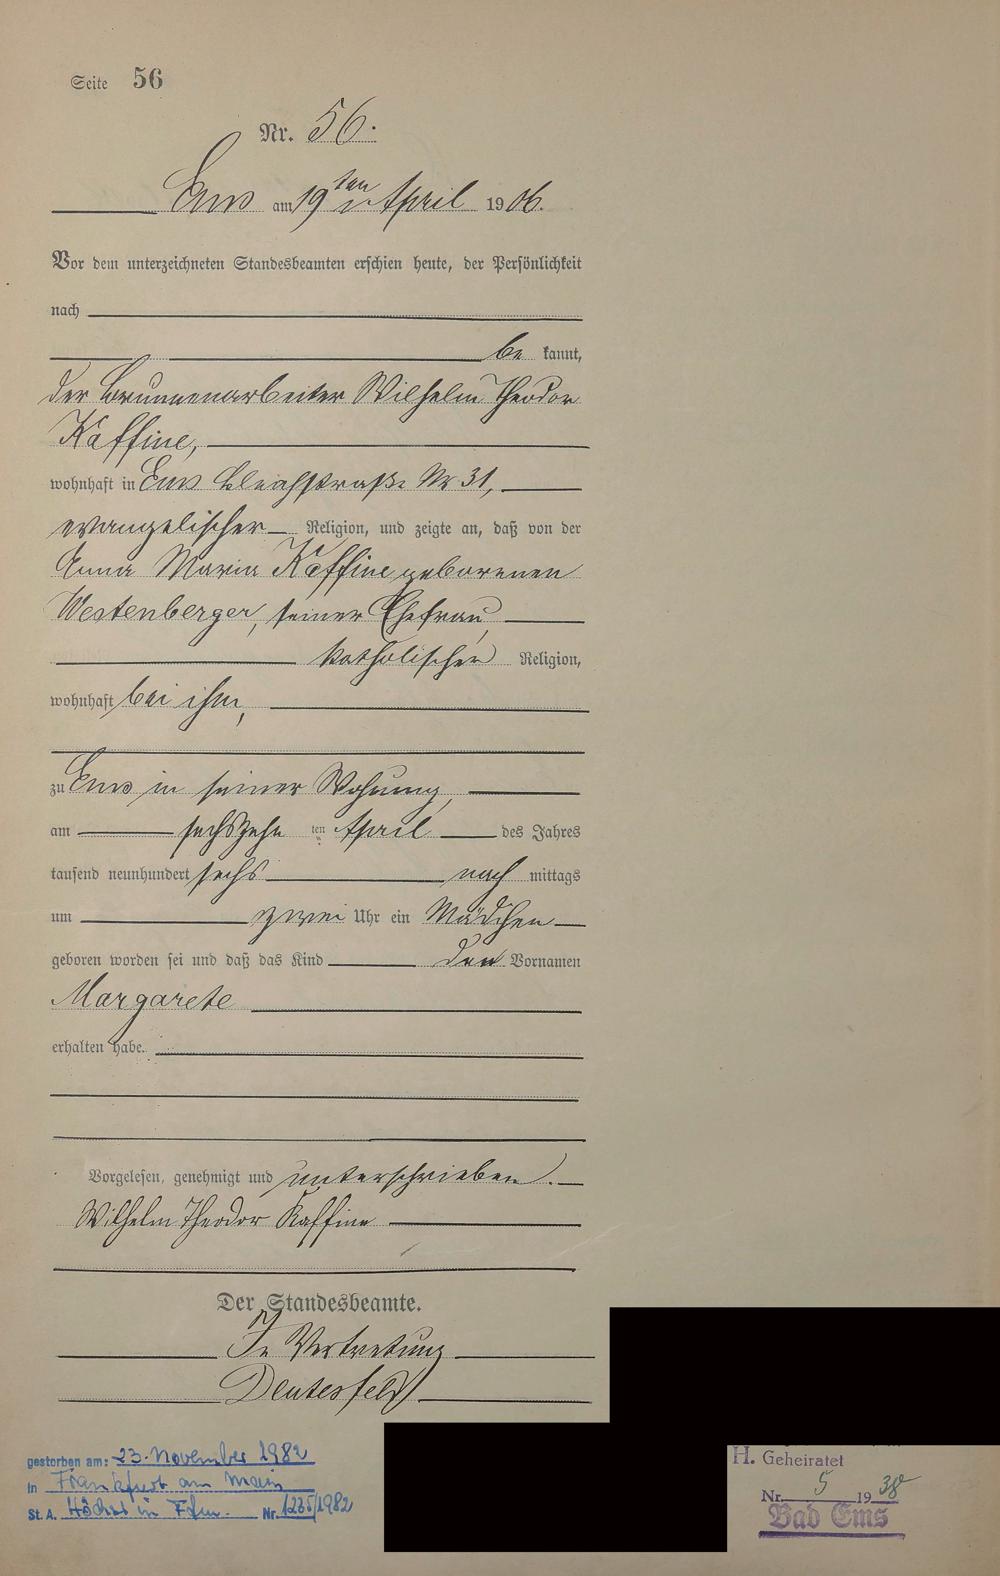 Seite 56
Nr. 56.
Ems am 19ten April 1906.
Vor dem unterzeichneten Standesbeamten erschien heute, der Persönlichkeit
nach
be kannt,
der Brunnenarbeiter Wilhelm Theodor
Kaffine,
wohnhaft in Ems Bleichstraße Nr 31,
evangelischer Religion, und zeigte an, daß von der
Anna Maria Kaffine geborenen
Westenberger, seiner Ehefrau,
katholischer Religion,
wohnhaft bei ihm,
zu Ems in seiner Wohnung,
am sechszehnten April des Jahres
tausend neunhundert sechs nach mittags
um zwei Uhr ein Mädchen
geboren worden sei und daß das Kind den Vornamen
Margarete
erhalten habe.
Vorgelesen, genehmigt und unterschrieben.
Wilhelm Theodor Kaffine
Der Standesbeamte.
In Vertretung
gestorben am: 23. November 1982
in Frankfurt am Main
St. A. Höchst in Ffm. Nr. 1235/1982
H. Geheiratet
Nr. 5 1938
Bad Ems